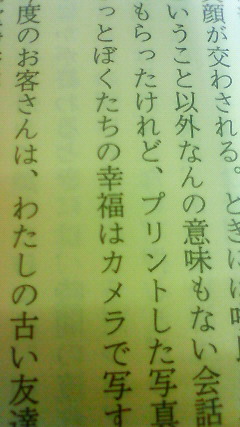 顔が交わされる。ときには
いうこと以外なんの意味もない会話
もらったけれど、プリントした写真
っとぼくたちの幸福はカメラで写す
度のお客さんは、わたしの古い友達